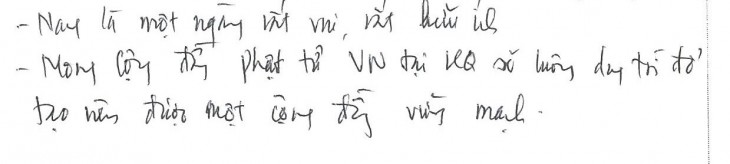 - Nay là một ngày rất vui, rất hữu ích
- Mong Cộng đồng phật tử VN tại HQ sẽ luôn duy trì để
tạo nên được một cộng đồng vững mạnh.